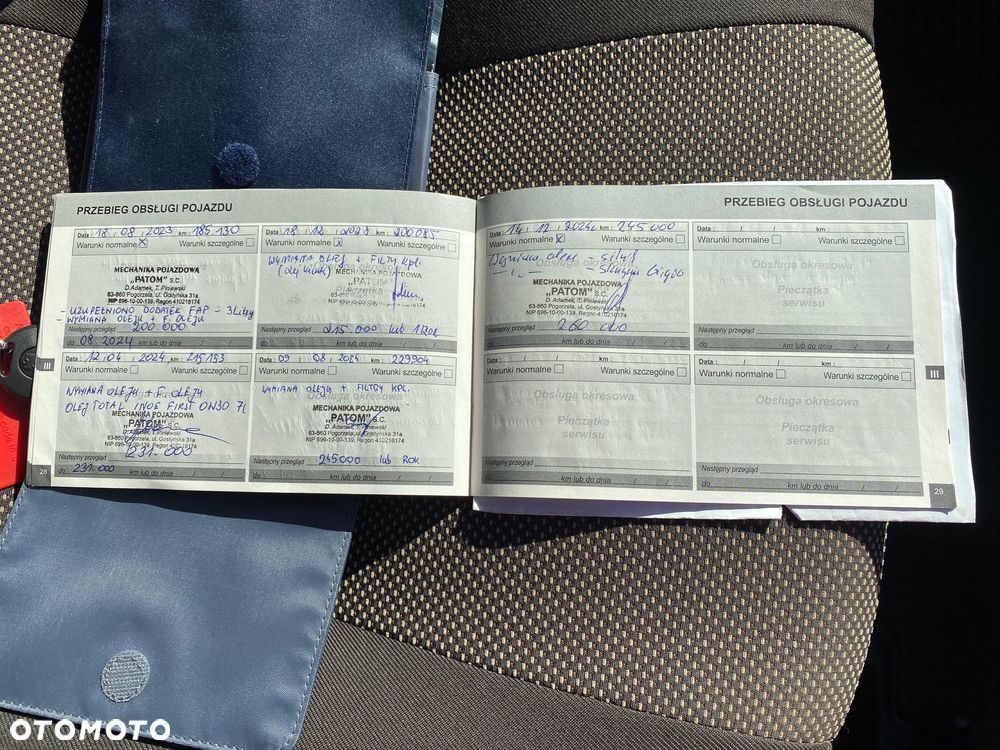 PRZEBIEG OBSŁUGI POJAZDU
Data : 18 . 08 . 2023 km : 185 130
Warunki normalne X Warunki szczególne
MECHANIKA POJAZDOWA
„PATOM” S.C.
D. Adamek, T. Piniewski
63-860 Pogorzela, ul. Gostyńska 31a
NIP 696-10-00-139, Regon 410216174
- UZUPEŁNIONO DODATEK FAP - 3 Litry
- WYMIANA OLEJU + F. OLEJU
Następny przegląd 200.000
do 08.2024 km lub do dnia / /
Data : 18 12 2023 km : 200 085
Warunki normalne X Warunki szczególne
WYMIANA OLEJ + FILTRY KPL.
MECHANIKA POJAZDOWA
Następny przegląd 215 000 lub 1 ROK
do km lub do dnia / /
Data : 12.04 2024 km : 215 153
Warunki normalne Warunki szczególne
WYMIANA OLEJU + F. OLEJU
OLEJ TOTAL INEO FIRST 0W30 7L
MECHANIKA POJAZDOWA
„PATOM” S.C.
D. Adamek, T. Piniewski
63-860 Pogorzela, ul. Gostyńska 31a
NIP 696-10-00-139, Regon 410216174
231.000
Następny przegląd
do 231.000 km lub do dnia / /
Data : 09 08 2024 km : 229904
Warunki normalne Warunki szczególne
WYMIANA OLEJU + FILTRY KPL.
MECHANIKA POJAZDOWA
„PATOM” S.C.
D. Adamek, T. Piniewski
63-860 Pogorzela, ul. Gostyńska 31a
NIP 696-10-00-139, Regon 410216174
Następny przegląd 245000 lub ROK
do km lub do dnia / /
III
28
PRZEBIEG OBSŁUGI POJAZDU
Data : 14 . 12 . 2024 km : 245 000
Warunki normalne X Warunki szczególne
Obsługa okresowa
Pieczątka
serwisu
MECHANIKA POJAZDOWA
„PATOM” S.C.
D. Adamek, T. Piniewski
63-860 Pogorzela, ul. Gostyńska 31a
NIP 696-10-00-139, Regon 410216174
Następny przegląd 260 000
do km lub do dnia / /
Data : / / km :
Warunki normalne Warunki szczególne
Obsługa okresowa
Pieczątka
serwisu
Następny przegląd
do km lub do dnia / /
Data : / / km :
Warunki normalne Warunki szczególne
Obsługa okresowa
Pieczątka
serwisu
Następny przegląd
do km lub do dnia / /
Data : / / km :
Warunki normalne Warunki szczególne
Obsługa okresowa
Pieczątka
serwisu
Następny przegląd
do km lub do dnia / /
III
29
OTOMOTO